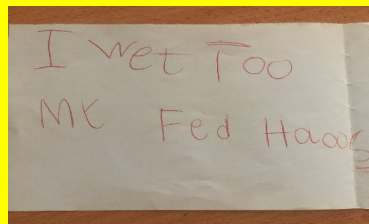 I wet Too
MK Fed Haoos